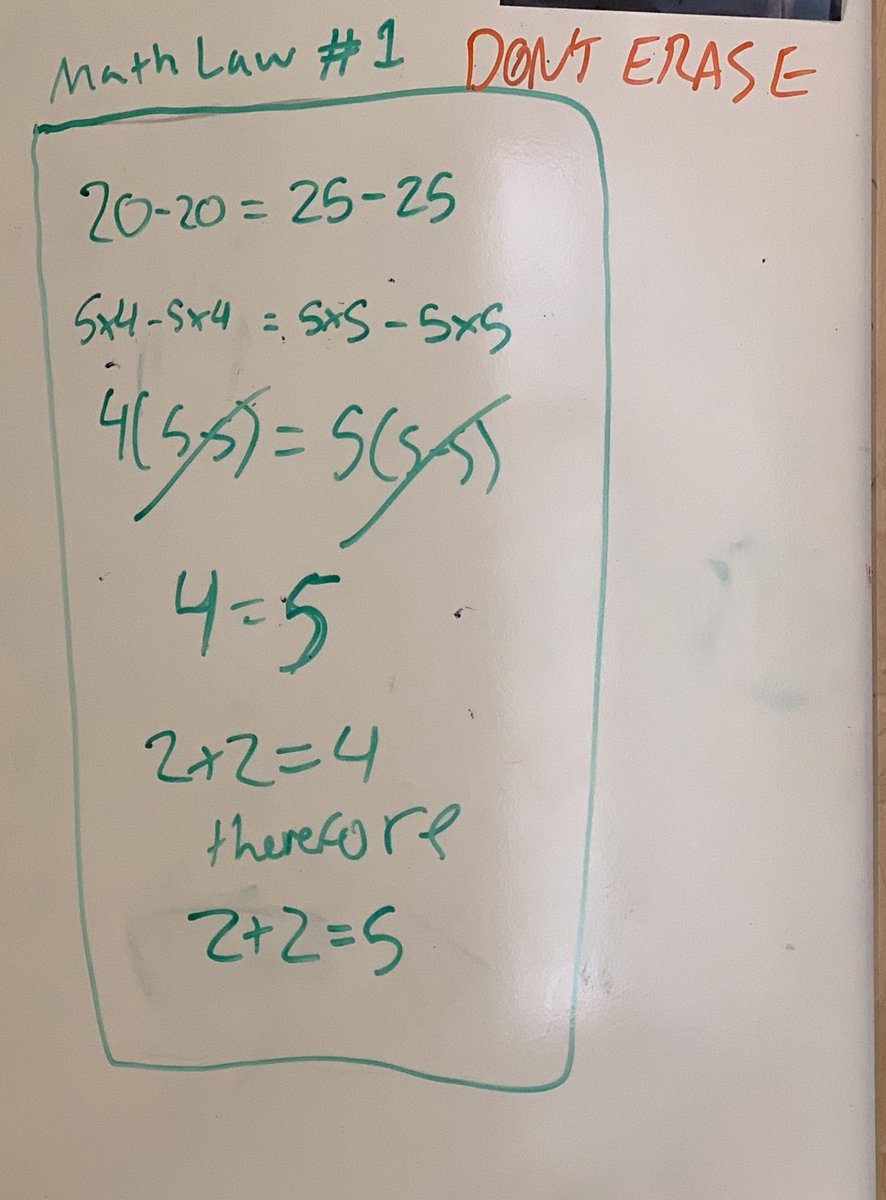 Math Law #1 DONT ERASE
20-20 = 25-25
5x4-5x4 = 5x5 - 5x5
4(5-5) = 5(5-5)
4=5
2+2=4
therefore
2+2=5